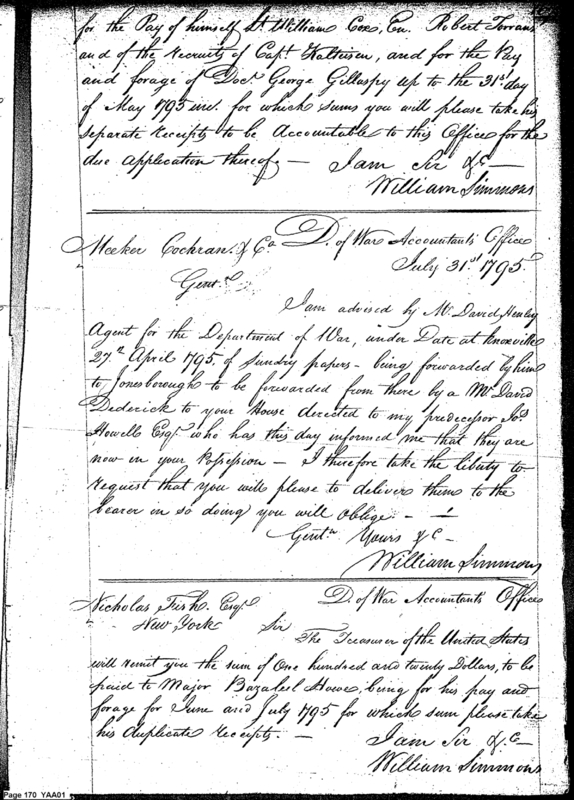 for the Pay of himself Lt William Cox, En. Robert Torrans
and of the recruits of Capt Kalteisen, and for the Pay
and forage of Doct George Gillaspy up to the 31st day
of May 1795 incl. for which sums you will please take his
separate receipts to be Accountable to this Office for the
due Application thereof — I am Sir &c —
William Simmons
Meeker Cochran & Co D. of War Accountants Office
July 31st 1795
Gentn
I am advised by Mr David Henley
Agent for the Department of War, under Date at Knoxville
27th April 1795, of sundry papers - being forwarded by him
to Jonesborough to be forwarded from there by a Mr David
Dederick to your House derected to my predecessor Jos
Howell Esqr who has this day informed me that they are
now in your Possession — I therefore take the liberty to
request that you will please to deliver them to the
bearer in so doing you will oblige - —
Gentn Yours &c —
William Simmons
Nicholas Fish Esqr D. of War Accountants Office
New York Sir
The Treasurer of the United States
will remit you the sum of One hundred and twenty Dollars, to be
paid to Major Bazaleel Howe, being for his pay and
forage for June and July 1795 for which sum please take
his duplicate receipts — I am Sir &c —
William Simmons
Page 170 YAA01